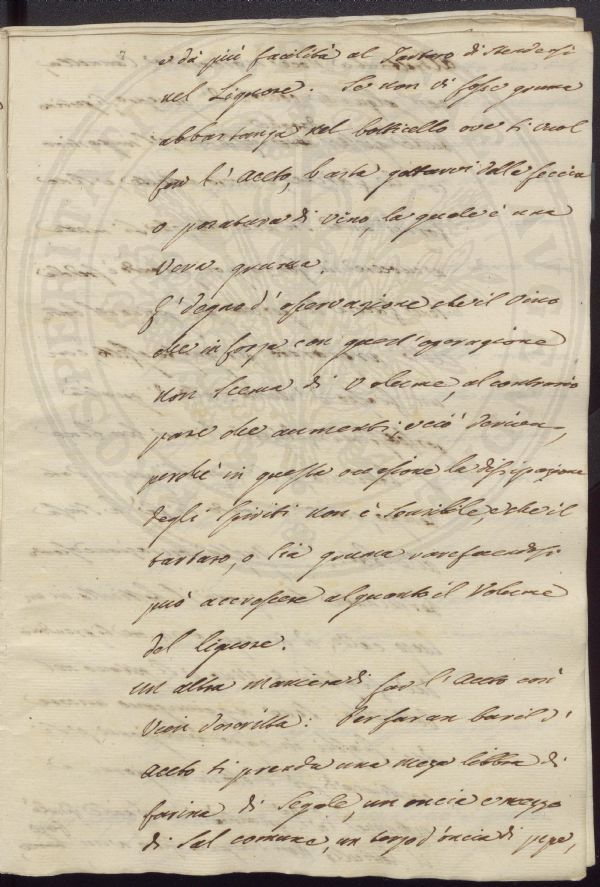 e dà più facilità al Tartaro di stendersi
nel Liquore. Se non vi fosse gruma
abbastanza nel botticello ove si vuol
far l'Aceto, basta gettarvi della feccia
o posatura di vino, la quale è una
vera gruma.
E' degno d'osservazione che il vino
che inforza con quest'operazione
non scema di volume, al contrario
pare che aumenti, e ciò
perché in questa occasione la dissipazione
degli spiriti non è sensibile, e che il
tartaro, o sia gruma rarefacendosi
può accrescere alquanto il volume
del liquore.
Un altra maniera di far l'Aceto così
vien descritta: Per far un baril d'
aceto si prenda una meza libbra di
farina di Segale, un oncia e mezzo
di Sal comune, un terzo d'oncia di pepe,
PROSPERITATI